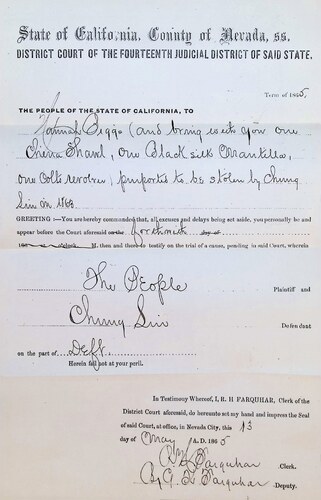 State of California, County of Nevada, ss.
DISTRICT COURT OF THE FOURTEENTH JUDICIAL DISTRICT OF SAID STATE.
Term of 1865.
THE PEOPLE OF THE STATE OF CALIFORNIA, TO
Hannah Biggs (and bring with you one
China Shawl, One Black silk Mantilla,
one Colts revolver) purported to be stolen by Chung
Sin in 1863
GREETING:—You are hereby commanded that, all excuses and delays being set aside, you personally be and
appear before the Court aforesaid on the forthwith day of
186 o'clock M. then and there to testify on the trial of a cause, pending in said Court, wherein
The People Plaintiff and
Chung Sin Defendant
on the part of Deft.
Herein fail not at your peril.
In Testimony Whereof, I, R. H FARQUHAR, Clerk of the
District Court aforesaid, do hereunto set my hand and impress the Seal
of said Court, at office, in Nevada City, this 13
day of May A. D. 1865
R H Farquhar Clerk.
By G. K. Farquhar Deputy.